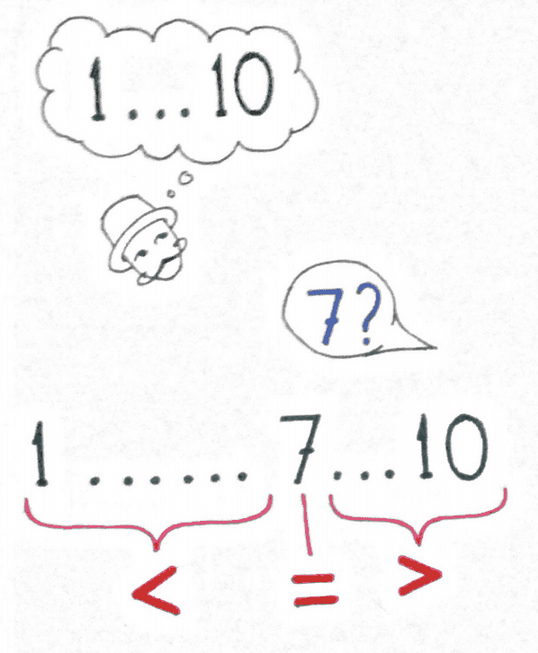 1...10
7?
1 ...... 7...10
< = >